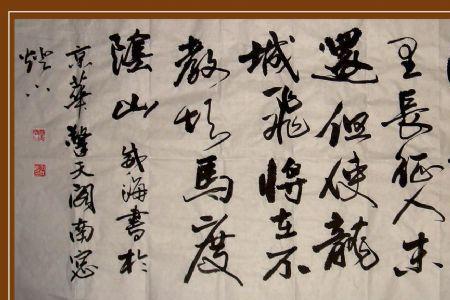 里長征人未
還但使龍
城飛將在不
教胡馬度
陰山 海書於
京華擎天閣南窗
燈下